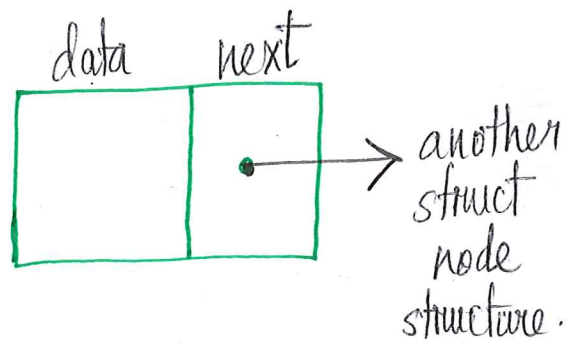 data next
another
struct
node
structure.